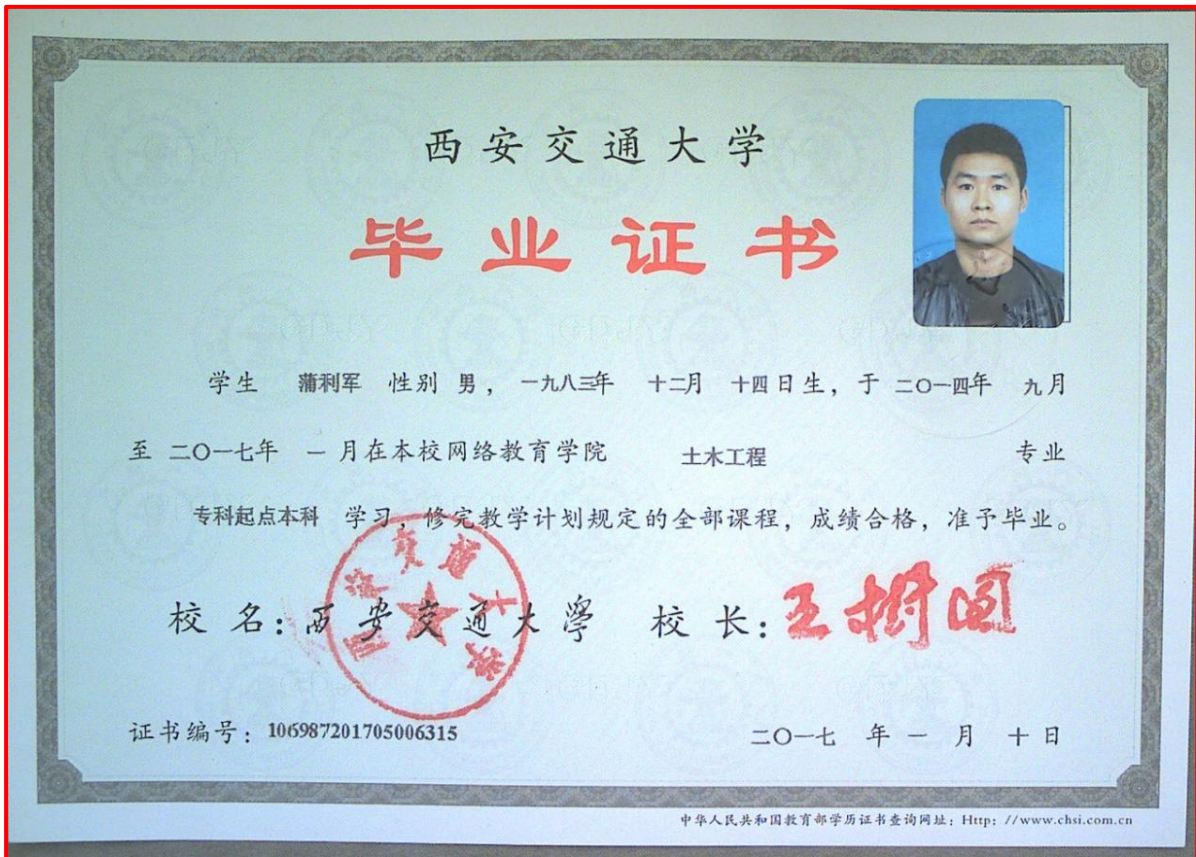 西安交通大学
毕业证书
学生 蒲利军 性别 男，一九八三年 十二月 十四日生，于 二〇一四年 九月
至 二〇一七年 一月在本校网络教育学院 土木工程 专业
专科起点本科 学习，修完教学计划规定的全部课程，成绩合格，准予毕业。
校 名：西安交通大學 校 长：王树国
西安交通大学
证书编号：106987201705006315 二〇一七 年 一 月 十 日
中华人民共和国教育部学历证书查询网址：Http：//www.chsi.com.cn